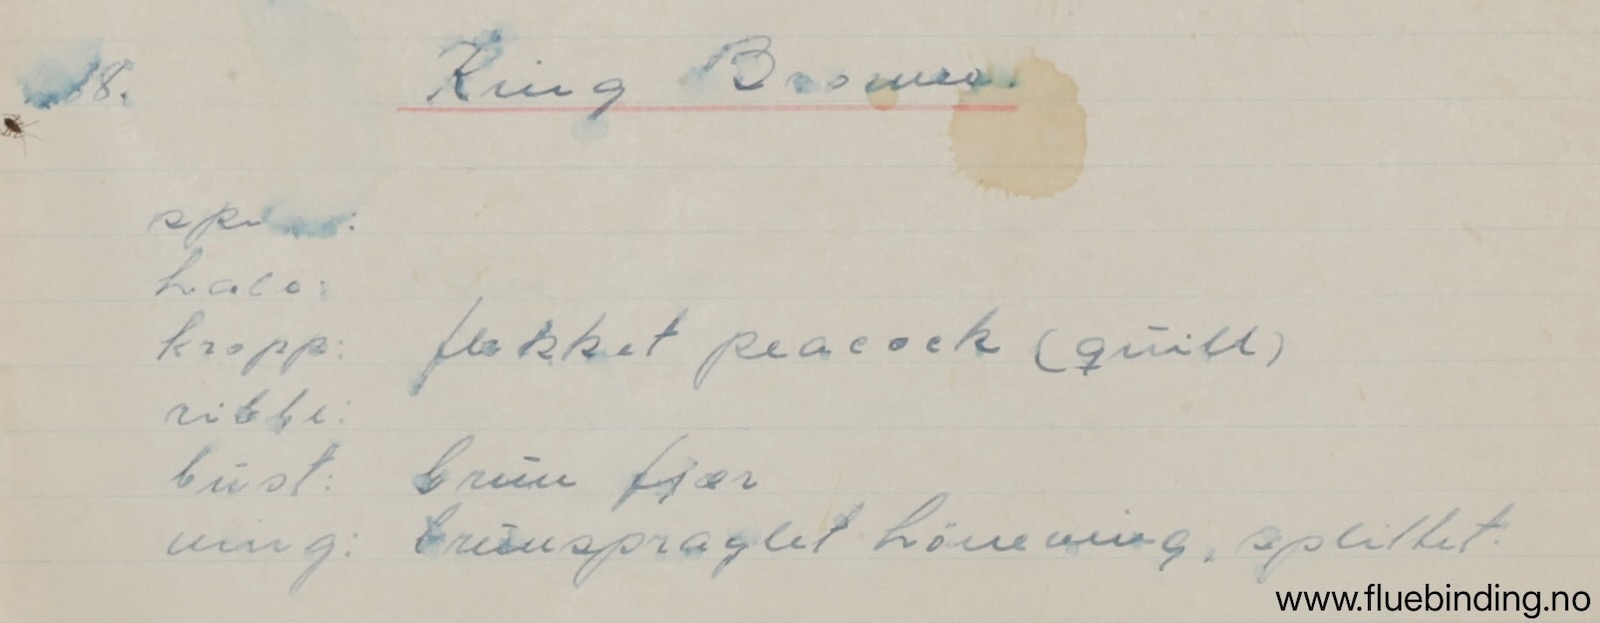 8. King Brown.
hale:
kropp: flekket peacock (quill)
ribbe:
bust: brun fjær
ving: brunspraglet höneving, splittet.
www.fluebinding.no